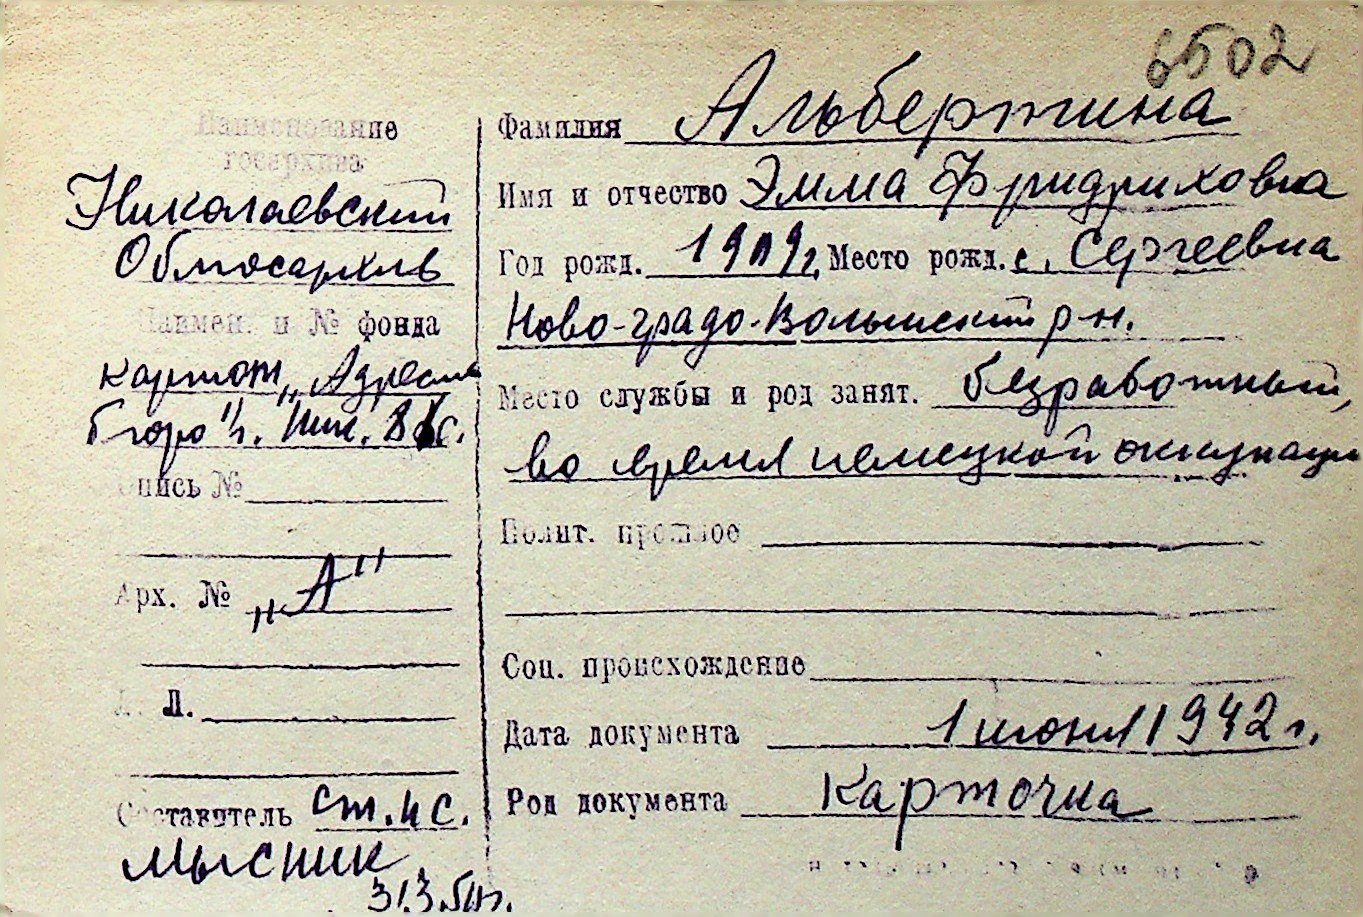 6502
Наименование
госархива
Николаевский
Облгосархив
Наимен. и № фонда
картот. „Адресное
бюро" г. Ник.
Опись №
Арх. № „А"
Л. Л.
Составитель ст. н с.
Мысник
31.3.50г.
Фамилия Альбертина
Имя и отчество Эмма Фридриховна
Год рожд. 1909г. Место рожд. с. Сергеевна
Ново-градо-Волынский р-н.
Место службы и род занят. безработный,
во время немецкой оккупации
Полит. прошлое
Соц. происхождение
Дата документа 1 июня 1942 г.
Род документа Карточка